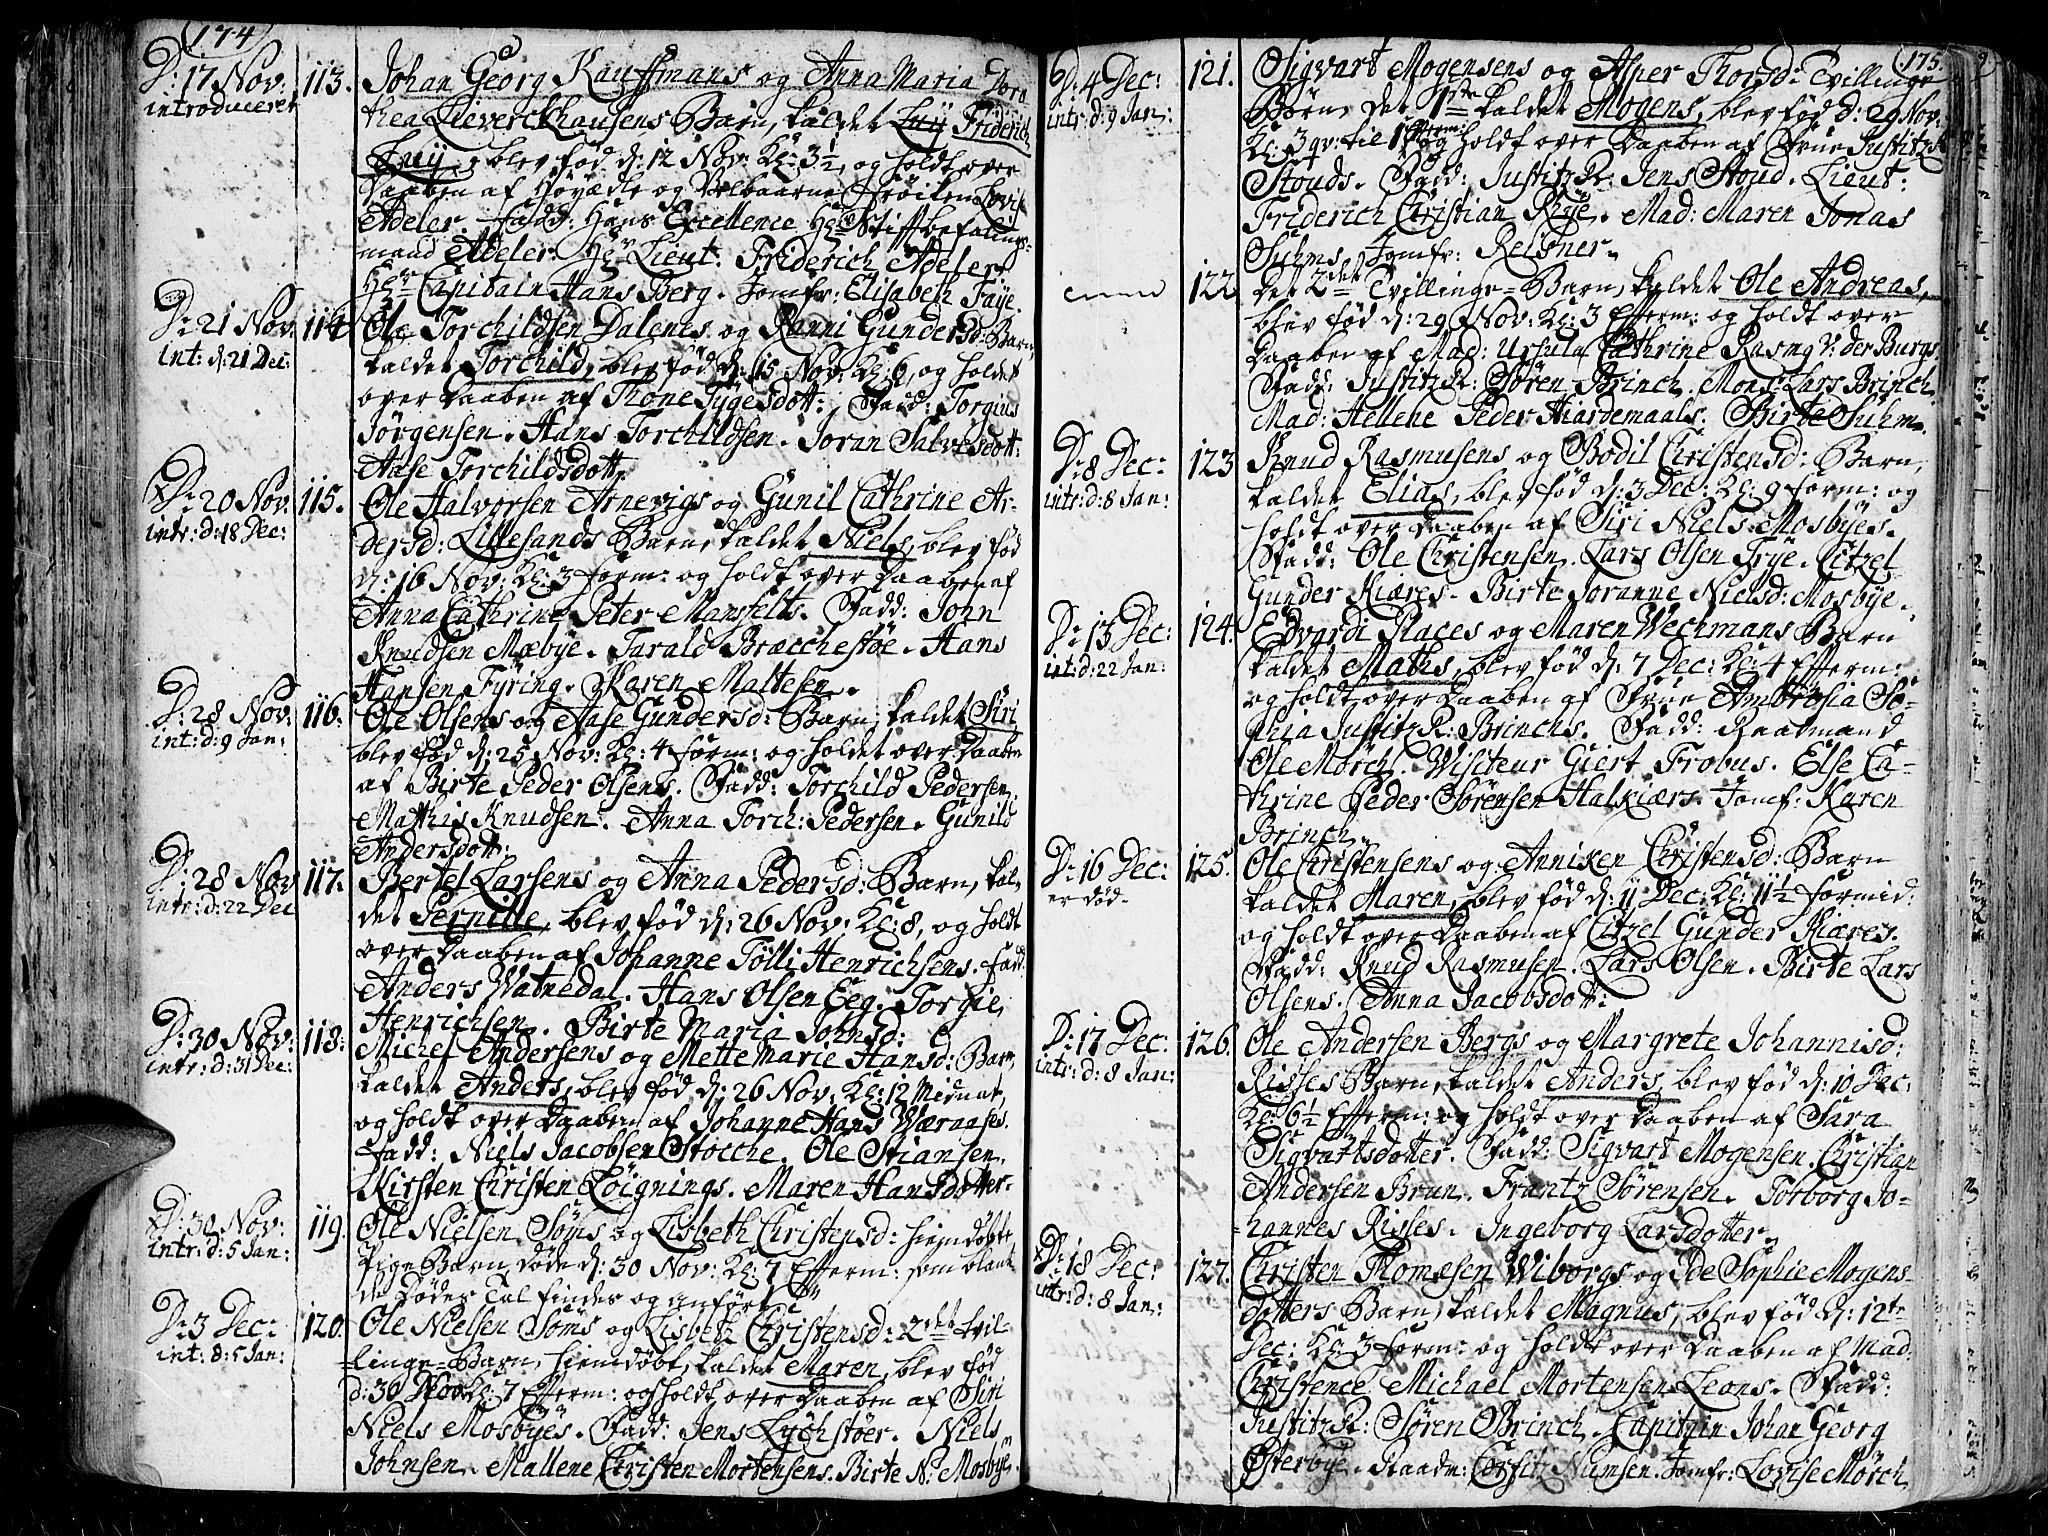 174
D: 17 Nov: 113. Johan Georg Kauffmans og Anna Maria Doro
introduceret
thea Lieverckhausens Barn, kaldet Luÿ Friderich
Luÿ, blev fød d: 12 Nov: Kl: 3½, og holdt over
Daaben af Høyædle og Velbaarne Frøiken Lovise
Adeler. Fadd: Hans Excellence Hr Stiftbefalings-
mand Adeler. Hr Lieut: Friderich Adeler
Hr Capitain Hans Berg. Jomfr: Elisabeth Faÿe.
D: 21 Nov: 114. Ole Torchildsen Dalenes og Ranni Gundersd: Barn,
int: d: 21 Dec:
kaldet Torchild, blev fød d: 15 Nov: Kl: 6, og holdt
over Daaben af Thone Tÿgesdott: Fadd: Torgius
Jørgensen. Hans Torchildsen. Joran Salvesdott:
Aase Torchildsdott:
D: 20 Nov: 115. Ole Halvorsen Arnevigs og Gunil Cathrine An-
intr: d: 18 Dec:
dersd: Lillesands Barn, kaldet Niels, blev fød
d: 16 Nov: Kl: 3 form: og holdt over Daaben af
Anna Cathrine Peter Mansfelts. Fadd: John
Knudsen Mæbÿe. Tarald Bræcchestøe. Hans
Hansen Fÿring. Karen Maltesen.
D: 28 Nov: 116. Ole Olsens og Aase Gundersd: Barn, kaldet Siri
int: d: 9 Jan:
blev fød d: 25 Nov: Kl: 4 form: og holdet over Daaben
af Birte Peder Olsens. Fadd: Torchild Pedersen.
Matthis Knudsen. Anna Torch: Pedersen. Gunild
Andersdott:
D: 28 Nov 117. Bertel Larsens og Anna Pedersd: Barn, kal-
intr: d: 22 Dec
det Pernille, blev fød d: 26 Nov: Kl: 8, og holdt
over Daaben af Johanne Tölli Henrichsens. Fadd:
Anders Watnedal. Hans Olsen Eeg. Torgie
Henrichsen. Birte Maria Johnsd:
D: 30 Nov: 118. Michel Andersens og Mette Marie Hansd: Barn,
intr: d: 31 Dec:
kaldet Anders, blev fød d: 26 Nov: Kl: 12 Midnat,
og holdt over Daaben af Johanne Hans Wæraases.
Fadd: Niels Jacobsen Stocche. Ole Stiansen.
Kirsten Christen Löignings. Maren Hansdotter.
D: 30 Nov: 119. Ole Nielsen Söms og Lisbeth Christensd: hiemdøbte
intr: d: 5 Jan:
Pige Barn, døde d: 30 Nov: Kl: 7 Efterm: som blant
de Dødes Tal findes og anført
D: 3 Dec: 120. Ole Nielsen Söms og Lisbeth Christensd: 2det Tvil-
int: d: 5 Jan:
linge-Barn, hiemdøbt, kaldet Maren, blev fød
d: 30 Nov: Kl: 7 Efterm: og holdt over Daaben af Siri
Niels Mosbÿes. Fadd: Jens Lÿchstöer. Niels
Johnsen. Mallene Christen Mortensens. Birte N: Mosbÿe.
175
D: 4 Dec: 121. Sigvart Mogensens og Asper Thorsd: Tvillinge
intr: d: 9 Jan:
Børn, det 1ste kaldet Mogens, blev fød d: 29 Nov:
Kl: 3 qv: til 1 Efterm: og holdt over Daaben af Frue Justitz R
Stouds. Fadd: Justitz R: Jens Stoud. Lieut:
Friderich Christian Rÿe. Mad: Maren Jonas
Suhms. Jomfr: Reisner.
122 Det 2det Tvillinge-Barn, kaldet Ole Andreas,
blev fød d: 29 Nov: Kl: 3 Efterm: og holdt over
Daaben af Mad: Ursula Cathrine Rasm: v: der Burgs,
Fadd: Justitz R: Søren Brinch. Mons: Lars Brinch.
Mad: Hellene Peder Hiardemaals. Birte Suhm.
D: 8 Dec: 123 Knud Rasmusens og Bodil Christensd: Barn,
intr: d: 8 Jan:
kaldet Elias, blev fød d: 3 Dec: Kl: 9 form: og
holdt over Daaben af Siri Niels Mosbÿes.
Fadd: Ole Christensen. Lars Olsen Trÿe. Citzel
Gunder Kiæres. Birte Joranne Nielsd: Mosbÿe.
D: 13 Dec: 124. Edvardi Places og Maren Wechmans Barn
int: d: 22 Jan:
kaldet Maths, blev fød d: 7 Dec: Kl: 4 Efterm:
og holdt over Daaben af Frue Ambrosia So-
phia Justitz R: Brinchs. Fadd: Raadmand
Ole Mörch. Visiteur Giert Frobus. Else Ca-
thrine Peder Sørensen Halkiærs. Jomf: Karen
Brinch.
D: 16 Dec: 125. Ole Christensens og Anniken Christensd: Barn
er død.
kaldet Maren, blev fød d: 11 Dec: Kl: 11½ formid:
og holdt over Daaben af Citzel Gunder Kiæres.
Fadd: Knud Rasmusen. Lars Olsen. Birte Lars
Olsens. Anna Jacobsdott:
D: 17 Dec: 126. Ole Andersen Bergs og Margrete Johannisd:
intr: d: 8 Jan:
Risses Barn, kaldet Anders, blev fød d: 10 Dec:
Kl: 6½ Efterm: og holdt over Daaben af Sara
Sigvartsdotter. Fadd: Sigvart Mogensen. Christian
Andersen Brun. Frantz Sørensen. Torborg Jo-
hannes Risses. Ingeborg Larsdotter.
D: 18 Dec: 127. Christen Thomesen Wiborgs og Ide Sophie Mogens-
intr: d: 8 Jan:
dotters Barn, kaldet Magnus, blev fød d: 12te
Dec: Kl: 3 form: og holdt over Daaben af Mad:
Christence Michael Mortensen Leons. Fadd:
Justitz R: Søren Brinch. Capitain Johan Georg
Osterbÿe. Raadm: Corfitz Numsen. Jomfr: Lovise Mörch